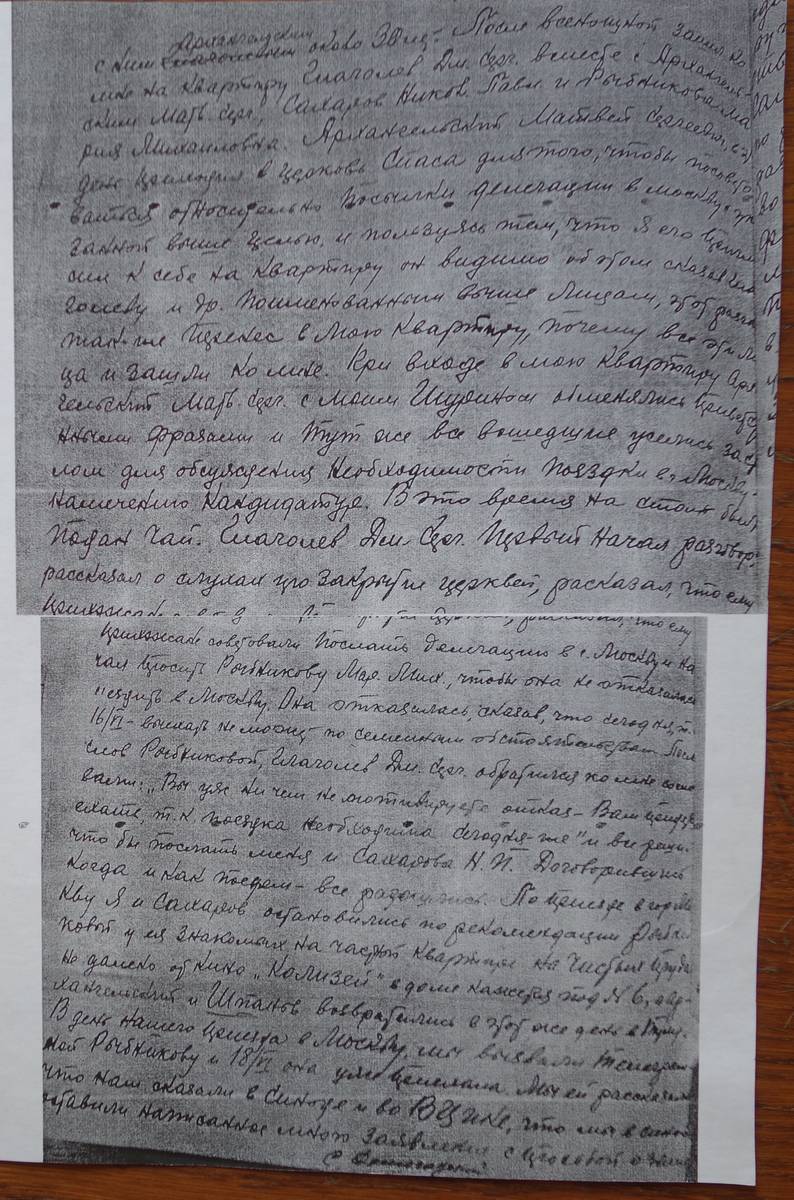 Архангельским
с ним знакомым около 30 лет. После всенощной зашел ко
мне на квартиру Глаголев Дм. Серг. вместе с Архангель-
ским Матв. Серг., Сахаров Никол. Павл. и Рыбникова Ма
рия Михаиловна. Архангельский Матвей Сергеевич в
день приходил в церковь Спаса для того, чтобы посовето
ваться относительно посылки делегации в Москву с ука
занной выше целью, и пользуясь тем, что я его пригла
сил к себе на квартиру он видимо об этом сказал Гла
голеву и др. поименованным выше лицам, этот разго
так-же перенес в мою квартиру, почему все эти ли
ца и зашли ко мне. При входе в мою квартиру Архан
гельский Матв. Серг. с моим шурином обменялись приветст
нными фразами и тут же все вошедшие уселись за ст
лом для обсуждения необходимости поездки в г. Москву.
намечению кандидатур. В это время на стол был
подан чай. Глаголев Дм. Серг. первый начал разговор,
рассказал о слухах про закрытие церквей, рассказал, что ему
прихожане советовали послать делегацию в г. Москву и на
чал просить Рыбникову Мар. Мих., чтобы она не отказалась
съездить в Москву. Она отказалась, сказав, что сегодня, т.
16/VI - выехать не может по семейным обстоятельствам. После
слов Рыбниковой, Глаголев Дм. Серг. обратился ко мне со сло
вами: „Вы уже ни чем не мотивируете отказ - Вам придется
ехать, т.к. поездка необходима сегодня-же" и все реши
что бы послать меня и Сахарова Н. П. Договорившись
когда и как поедем - все разошлись. По приезде в город Мос
кву я и Сахаров остановились по рекомендации Рыбни
ковой у ея знакомых на частной квартире на Чистых прудах
не далеко от кино „Колизей" в доме кажется под N 6, а Ар-
хангельский и Шпанов возвратились в этот же день в
В день нашего приезда в Москву, мы вызвали телеграм
мой Рыбникову и 18/VI она уже приехала. Мы ей рассказали
что нам сказали в Синоде и во ВЦИКе, что мы в синод
оставили написанное мною заявление с просьбой о